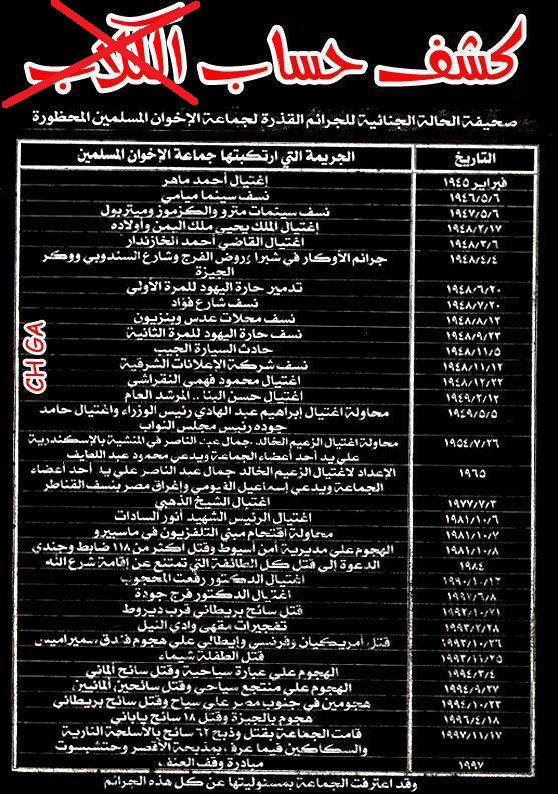 كشف حساب الكلاب
صحيفة الحالة الجنائية للجرائم القذرة لجماعة الإخوان المسلمين المحظورة
التاريخ الجريمة التي ارتكبتها جماعة الإخوان المسلمين
فبراير ١٩٤٥ إغتيال أحمد ماهر
١٩٤٦/٥/٦ نسف سينما ميامي
١٩٤٧/٥/٦ نسف سينمات مترو والكزمور وميتربول
١٩٤٨/٢/١٧ اغتيال الملك يحيي ملك اليمن وأولاده
١٩٤٨/٣/٦ اغتيال القاضي أحمد الخازندار
١٩٤٨/٤/٤ جرائم الأوكار في شبرا وروض الفرج وشارع السندوبي ووكر
الجيزة
١٩٤٨/٦/٢٠ تدمير حارة اليهود للمرة الأولي
١٩٤٨/٧/٢٠ نسف شارع فؤاد
١٩٤٨/٨/١٢ نسف محلات عدس وبنزيون
١٩٤٨/٩/٢٣ نسف حارة اليهود للمرة الثانية
١٩٤٨/١١/٥ حادث السيارة الجيب
١٩٤٨/١١/١٢ نسف شركة الإعلانات الشرقية
١٩٤٨/١٢/٢٢ إغتيال محمود فهمي النقراشي
١٩٤٩/٢/١٢ إغتيال حسن البنا .. المرشد العام
١٩٤٩/٥/٥ محاولة اغتيال إبراهيم عبد الهادي رئيس الوزراء واغتيال حامد
جوده رئيس مجلس النواب
١٩٥٤/٧/٢٦ محاولة اغتيال الزعيم الخالد جمال عبد الناصر في المنشية بالإسكندرية
علي يد أحد أعضاء الجماعة ويدعي محمود عبد اللطيف
١٩٦٥ الإعداد لاغتيال الزعيم الخالد جمال عبد الناصر علي يد أحد أعضاء
الجماعة ويدعي إسماعيل الفيومي وإغراق مصر بنسف القناطر
١٩٧٧/٧/٣ اغتيال الشيخ الذهبي
١٩٨١/١٠/٦ اغتيال الرئيس الشهيد أنور السادات
١٩٨١/١٠/٧ محاولة إقتحام مبني التلفزيون في ماسبيرو
١٩٨١/١٠/٨ الهجوم علي مديرية أمن أسيوط وقتل أكثر من ١١٨ ضابط وجندي
١٩٨٤ الدعوة إلي قتل كل الطائفة التي تمتنع عن إقامة شرع الله
١٩٩٠/١٠/١٢ اغتيال الدكتور رفعت المحجوب
/٦/٨ اغتيال الدكتور فرج جودة
١٩٩٢/١٠/٢١ قتل سائح بريطاني قرب ديروط
١٩٩٣/٢/٢٨ تفجيرات مقهي وادي النيل
١٩٩٣/١٠/٢٦ قتل أمريكيان وفرنسي وإيطالي علي هجوم فندق سميراميس
١٩٩٣/١١/٢٥ قتل الطفلة شيماء
١٩٩٤/٣/٤ الهجوم علي عبارة سياحية وقتل سائح ألماني
١٩٩٤/٩/٢٧ الهجوم علي منتجع سياحي وقتل سائحين ألمانيين
١٩٩٤/١٠/٢٣ هجومين في جنوب مصر علي سياح وقتل سائح بريطاني
١٩٩٦/٤/١٨ هجوم بالجيزة وقتل ١٨ سائح ياباني
١٩٩٧/١١/١٧ قامت الجماعة بقتل وذبح ٦٢ سائح بالأسلحة النارية
والسكاكين فيما عرف بمذبحة الأقصر وحتشبسوت
١٩٩٧ مبادرة وقف العنف
وقد اعترفت الجماعة بمسئوليتها عن كل هذه الجرائم
CH GA